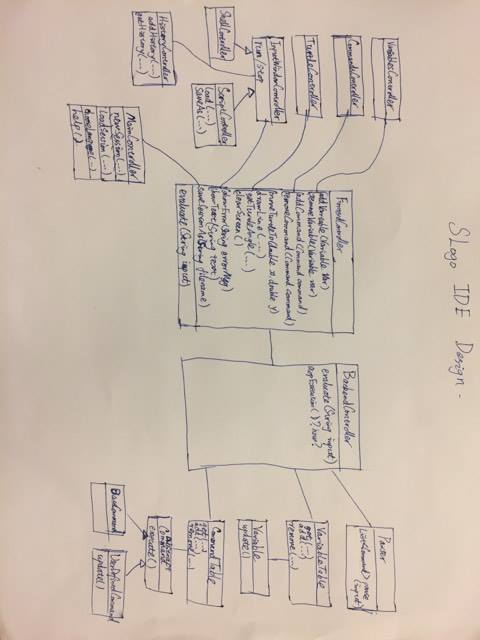 SLogo IDE Design -
VariablesController
CommandsController
TurtleController
InputWindowController
run/stop
ShellController
ScriptController
load (...)
saveAs (...)
HistoryController
addHistory (...)
getHistory (...)
MainController
newSession (...)
loadSession (...)
help ()
FrontendController
addVariable (Variable var)
removeVariable (Variable var)
addCommand (Command command)
removeCommand (Command command)
moveTurtleTo (double x, double y)
drawLine (...)
setTurtleAngle (...)
clearScreen ()
showError (String errorMsg)
showText (String text)
saveSessionAs (String filename)
evaluate (String input)
BackendController
evaluate (String input)
stopExecution () ? how?
Parser
List<Command> parse
(input)
VariableTable
get (...)
add (...)
remove (...)
Variable
update ()
CommandTable
get (...)
add (...)
remove (...)
Abstract
Command
execute ()
UserDefinedCommand
update ()